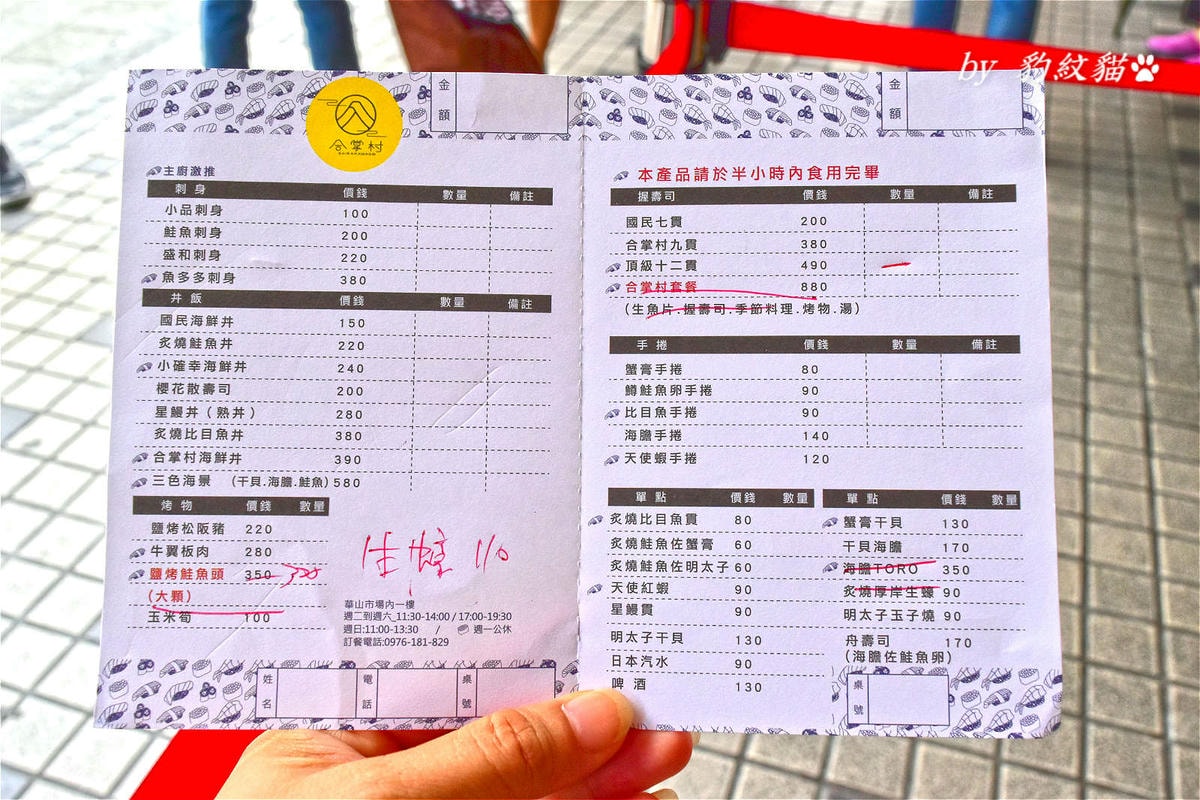 by 豹紋貓
金額
合掌村
主廚激推
刺身 價錢 數量 備註
小品刺身 100
鮭魚刺身 200
盛和刺身 220
魚多多刺身 380
丼飯 價錢 數量 備註
國民海鮮丼 150
炙燒鮭魚丼 220
小確幸海鮮丼 240
櫻花散壽司 200
星鰻丼(熟丼) 280
炙燒比目魚丼 380
合掌村海鮮丼 390
三色海景 (干貝.海膽.鮭魚)580
烤物 價錢 數量
鹽烤松阪豬 220
牛翼板肉 280
鹽烤鮭魚頭 350
(大顆)
玉米筍 100
110
華山市場內一樓
週二到週六_11:30-14:00 / 17:00-19:30
週日:11:00-13:30 / 週一公休
訂餐電話:0976-181-829
姓名 電話 桌號
金額
本產品請於半小時內食用完畢
握壽司 價錢 數量 備註
國民七貫 200
合掌村九貫 380
頂級十二貫 490
合掌村套餐 880
(生魚片.握壽司.季節料理.烤物.湯)
手捲 價錢 數量 備註
蟹膏手捲 80
鱒鮭魚卵手捲 90
比目魚手捲 90
海膽手捲 140
天使蝦手捲 120
單點 價錢 數量
炙燒比目魚貫 80
炙燒鮭魚佐蟹膏 60
炙燒鮭魚佐明太子 60
天使紅蝦 90
星鰻貫 90
明太子干貝 130
日本汽水 90
啤酒 130
單點 價錢 數量
蟹膏干貝 130
干貝海膽 170
海膽TORO 350
炙燒厚岸生蠔 90
明太子玉子燒 90
舟壽司 170
(海膽佐鮭魚卵)
桌號